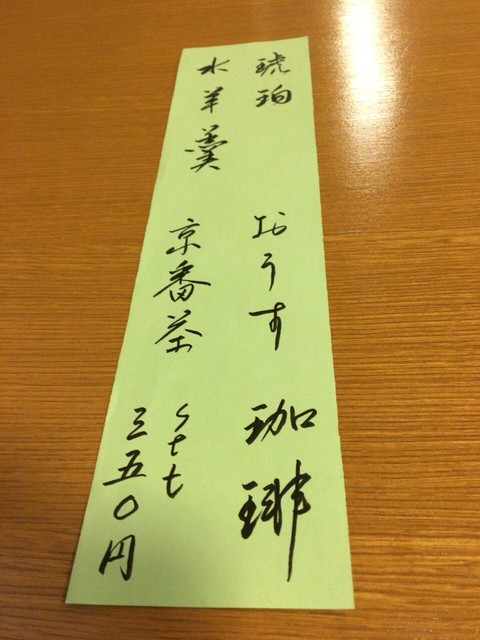 琥珀 おうす 珈琲
水羊羹 京番茶
三五〇円